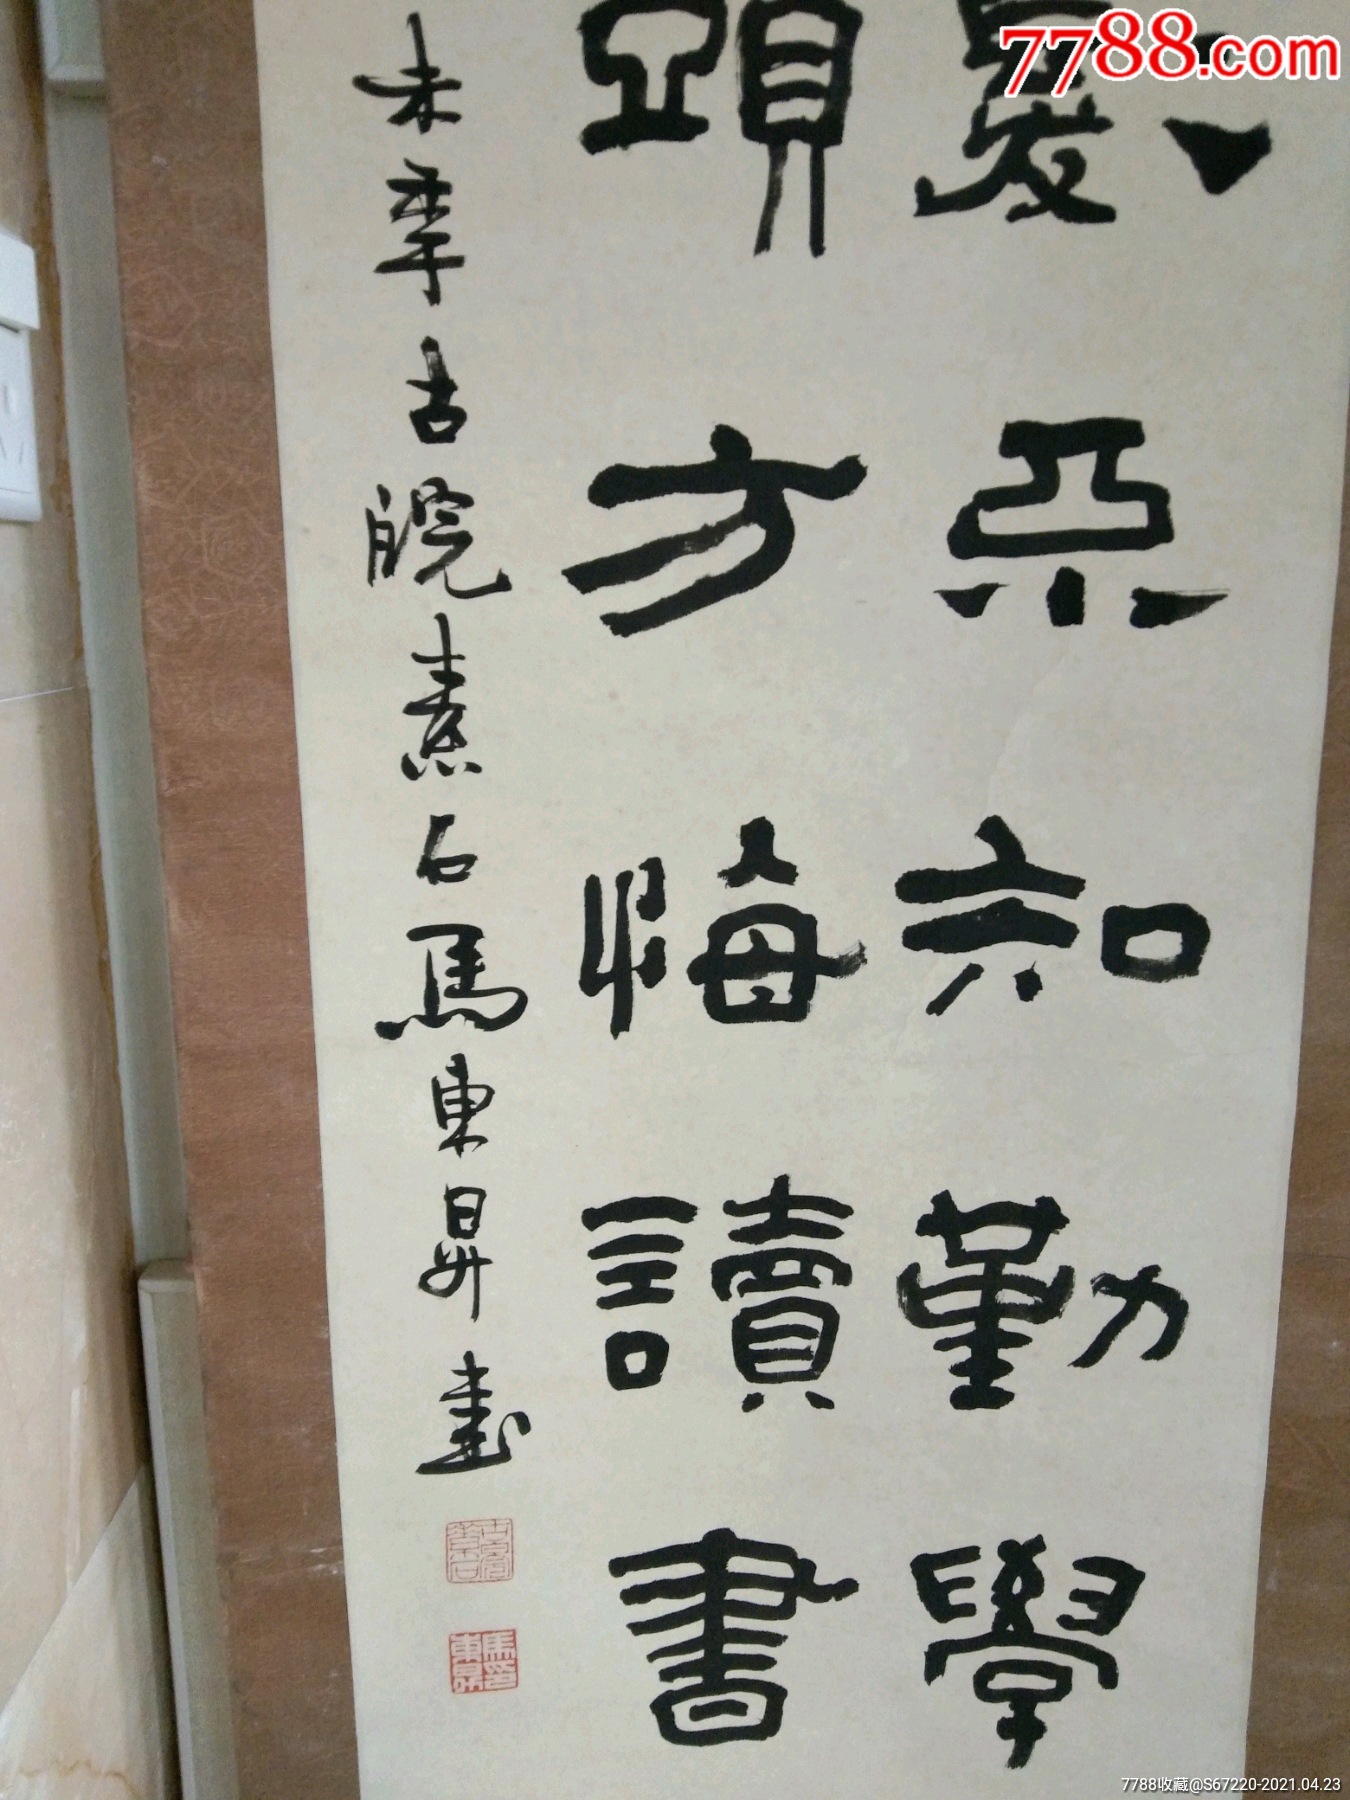 7788.com
髮不知勤學
頭方悔讀書
未年古皖素石馬東昇書
古皖素石
馬東昇印
7788收藏@S67220-2021.04.23